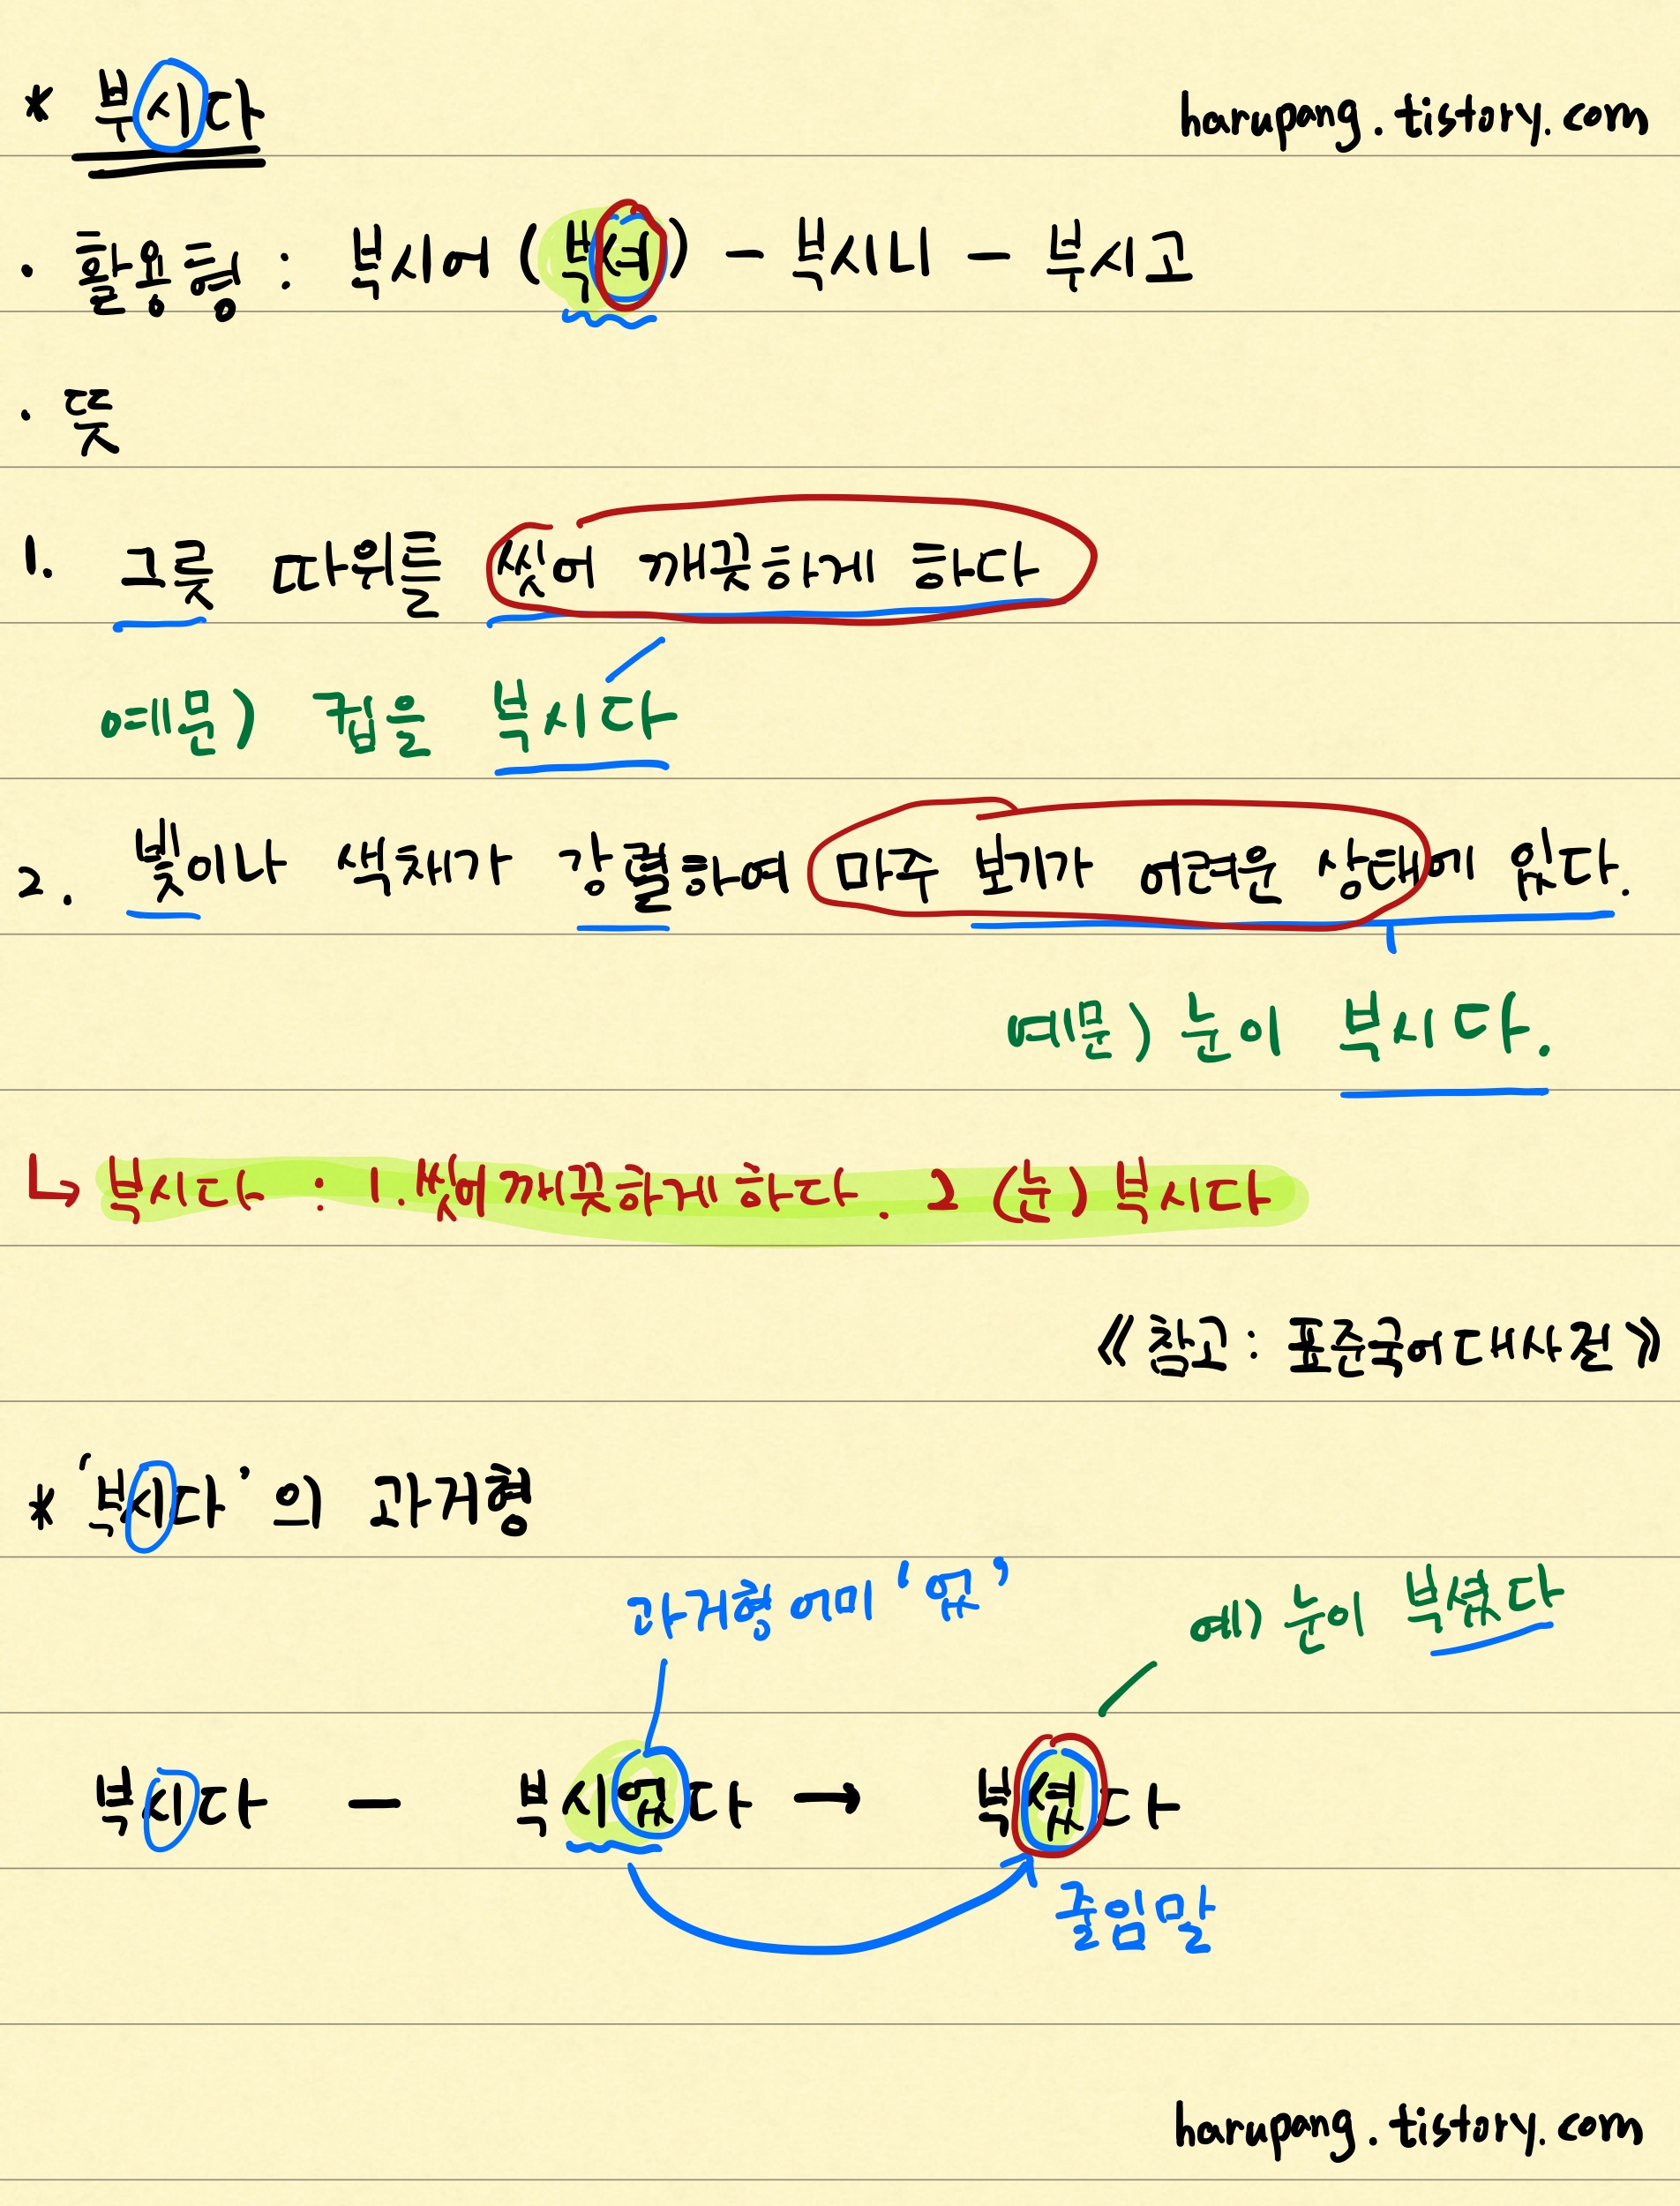 * 부시다
harupang.tistory.com
· 활용형 : 부시어 (부셔) - 부시니 - 부시고
· 뜻
1. 그릇 따위를 씻어 깨끗하게 하다
예문) 컵을 부시다
2. 빛이나 색채가 강렬하여 마주 보기가 어려운 상태에 있다.
예문) 눈이 부시다.
↳ 부시다 : 1. 씻어 깨끗하게 하다. 2 (눈) 부시다
《참고 : 표준국어대사전》
* '부시다'의 과거형
과거형 어미 '었'
예) 눈이 부셨다
부시다 - 부시었다 → 부셨다
줄임말
harupang.tistory.com